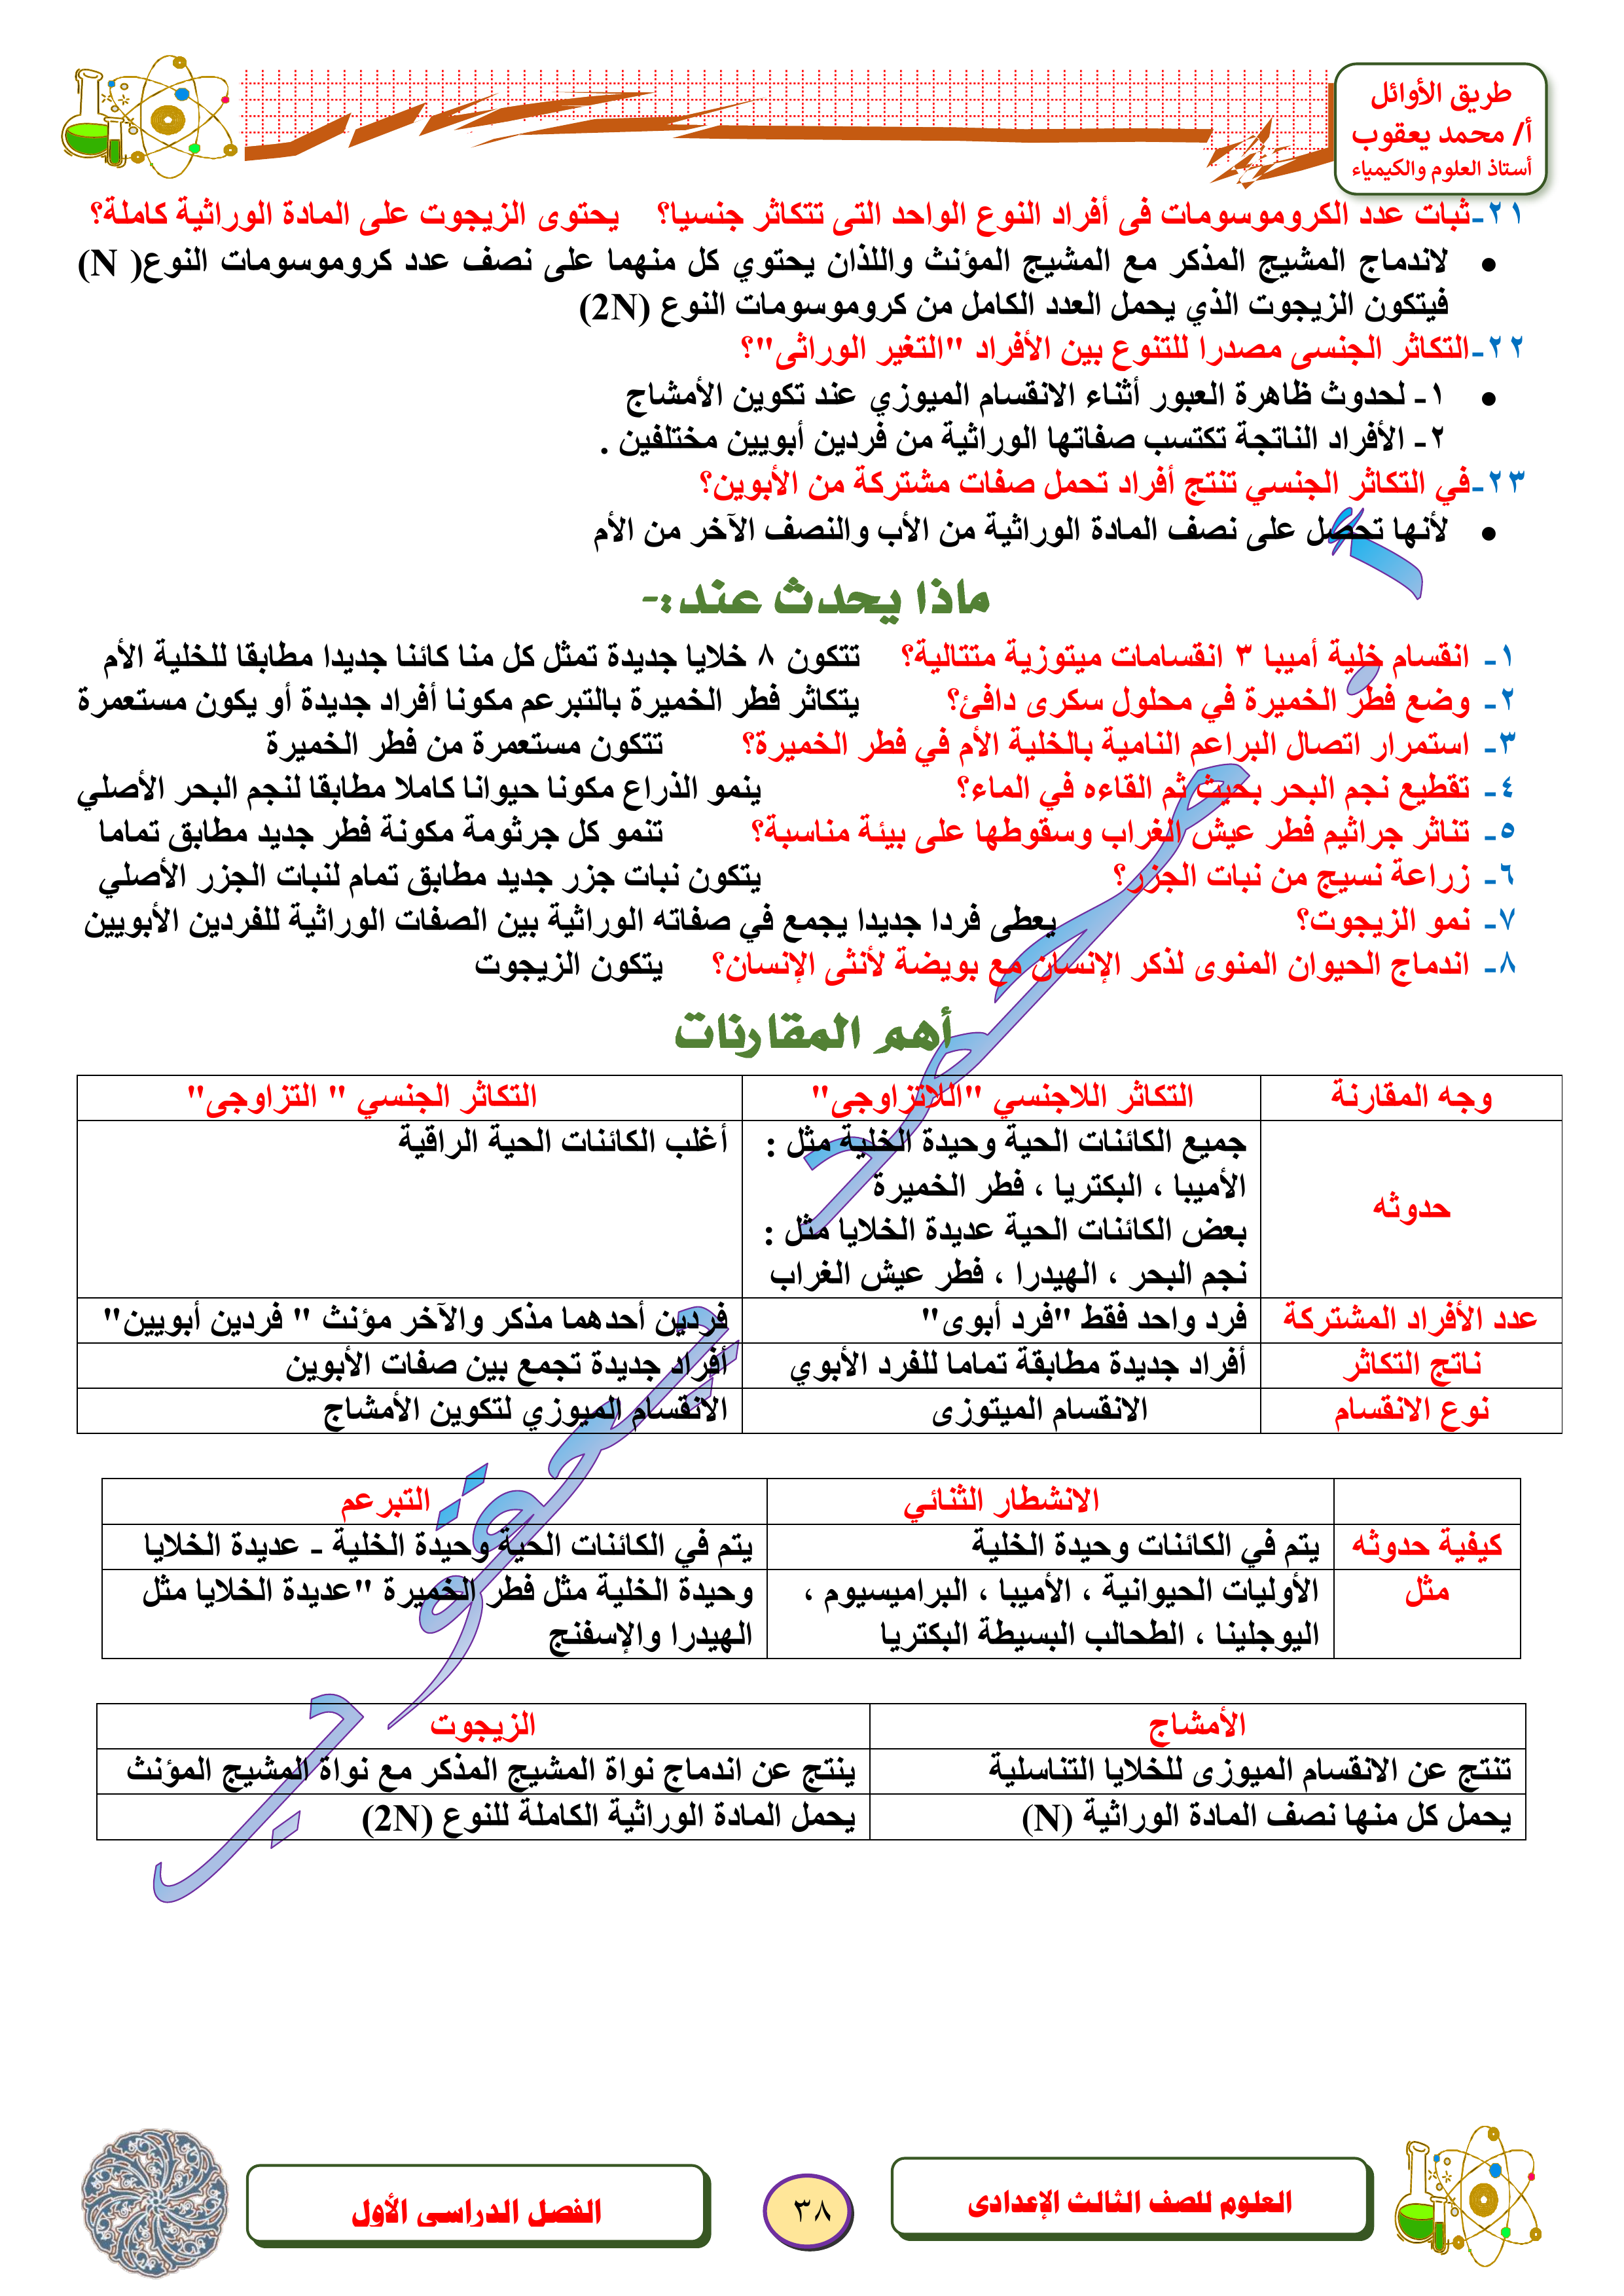 طريق الأوائل
أ/ محمد يعقوب
أستاذ العلوم والكيمياء
٢١-ثبات عدد الكروموسومات فى أفراد النوع الواحد التى تتكاثر جنسيا؟ يحتوى الزيجوت على المادة الوراثية كاملة؟
• لاندماج المشيج المذكر مع المشيج المؤنث واللذان يحتوي كل منهما على نصف عدد كروموسومات النوع( N)
فيتكون الزيجوت الذي يحمل العدد الكامل من كروموسومات النوع (2N)
٢٢-التكاثر الجنسى مصدرا للتنوع بين الأفراد "التغير الوراثى"؟
• ١- لحدوث ظاهرة العبور أثناء الانقسام الميوزي عند تكوين الأمشاج
٢- الأفراد الناتجة تكتسب صفاتها الوراثية من فردين أبويين مختلفين .
٢٣-في التكاثر الجنسي تنتج أفراد تحمل صفات مشتركة من الأبوين؟
• لأنها تحصل على نصف المادة الوراثية من الأب والنصف الآخر من الأم
ماذا يحدث عند:-
١- انقسام خلية أميبا ٣ انقسامات ميتوزية متتالية؟ تتكون ٨ خلايا جديدة تمثل كل منا كائنا جديدا مطابقا للخلية الأم
٢- وضع فطر الخميرة في محلول سكرى دافئ؟ يتكاثر فطر الخميرة بالتبرعم مكونا أفراد جديدة أو يكون مستعمرة
٣- استمرار اتصال البراعم النامية بالخلية الأم في فطر الخميرة؟ تتكون مستعمرة من فطر الخميرة
٤- تقطيع نجم البحر بحيث ثم القاءه في الماء؟ ينمو الذراع مكونا حيوانا كاملا مطابقا لنجم البحر الأصلي
٥- تناثر جراثيم فطر عيش الغراب وسقوطها على بيئة مناسبة؟ تنمو كل جرثومة مكونة فطر جديد مطابق تماما
٦- زراعة نسيج من نبات الجزر؟ يتكون نبات جزر جديد مطابق تمام لنبات الجزر الأصلي
٧- نمو الزيجوت؟ يعطى فردا جديدا يجمع في صفاته الوراثية بين الصفات الوراثية للفردين الأبويين
٨- اندماج الحيوان المنوى لذكر الإنسان مع بويضة لأنثى الإنسان؟ يتكون الزيجوت
أهم المقارنات
وجه المقارنة التكاثر اللاجنسي "اللاتزاوجى" التكاثر الجنسي " التزاوجى"
حدوثه
جميع الكائنات الحية وحيدة الخلية مثل :
الأميبا ، البكتريا ، فطر الخميرة
بعض الكائنات الحية عديدة الخلايا مثل :
نجم البحر ، الهيدرا ، فطر عيش الغراب
أغلب الكائنات الحية الراقية
عدد الأفراد المشتركة فرد واحد فقط "فرد أبوى" فردين أحدهما مذكر والآخر مؤنث " فردين أبويين"
ناتج التكاثر أفراد جديدة مطابقة تماما للفرد الأبوي أفراد جديدة تجمع بين صفات الأبوين
نوع الانقسام الانقسام الميتوزى الانقسام الميوزي لتكوين الأمشاج
الانشطار الثنائي التبرعم
كيفية حدوثه يتم في الكائنات وحيدة الخلية يتم في الكائنات الحية وحيدة الخلية - عديدة الخلايا
مثل
الأوليات الحيوانية ، الأميبا ، البراميسيوم ،
اليوجلينا ، الطحالب البسيطة البكتريا
وحيدة الخلية مثل فطر الخميرة "عديدة الخلايا مثل
الهيدرا والإسفنج
الأمشاج الزيجوت
تنتج عن الانقسام الميوزى للخلايا التناسلية ينتج عن اندماج نواة المشيج المذكر مع نواة المشيج المؤنث
يحمل كل منها نصف المادة الوراثية (N) يحمل المادة الوراثية الكاملة للنوع (2N)
أ. محمد يعقوب
العلوم للصف الثالث الإعدادى
٣٨
الفصل الدراسى الأول